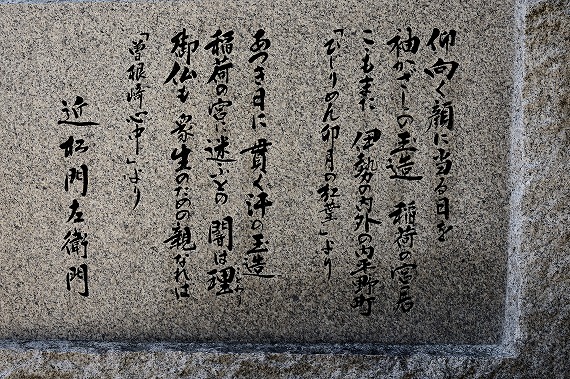 仰向く顔に当る日を
袖かざしの玉造 稲荷の宮居
こもまた 伊勢の内外の内平野町
「ひぢりめん卯月の紅葉」より
あつき日に 貫く汗の玉造
稲荷の宮に迷ふとの 闇は理
ことわり
御仏も 衆生のための親なれば
「曽根崎心中」より
近松門左衛門